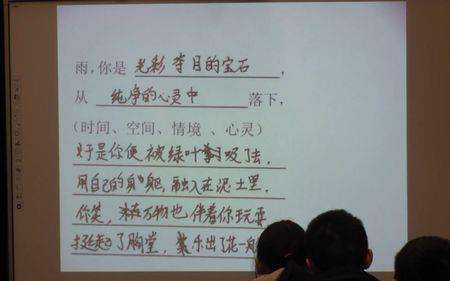 雨,你是 光彩夺目的宝石 ,
从 纯净的心灵中 落下,
(时间、空间、情境 、心灵)
于是你便被绿叶吸了去,
用自己的身躯,融入在泥土里.
你笑,万物也伴着你玩耍
挺起了胸堂,乐出了花一